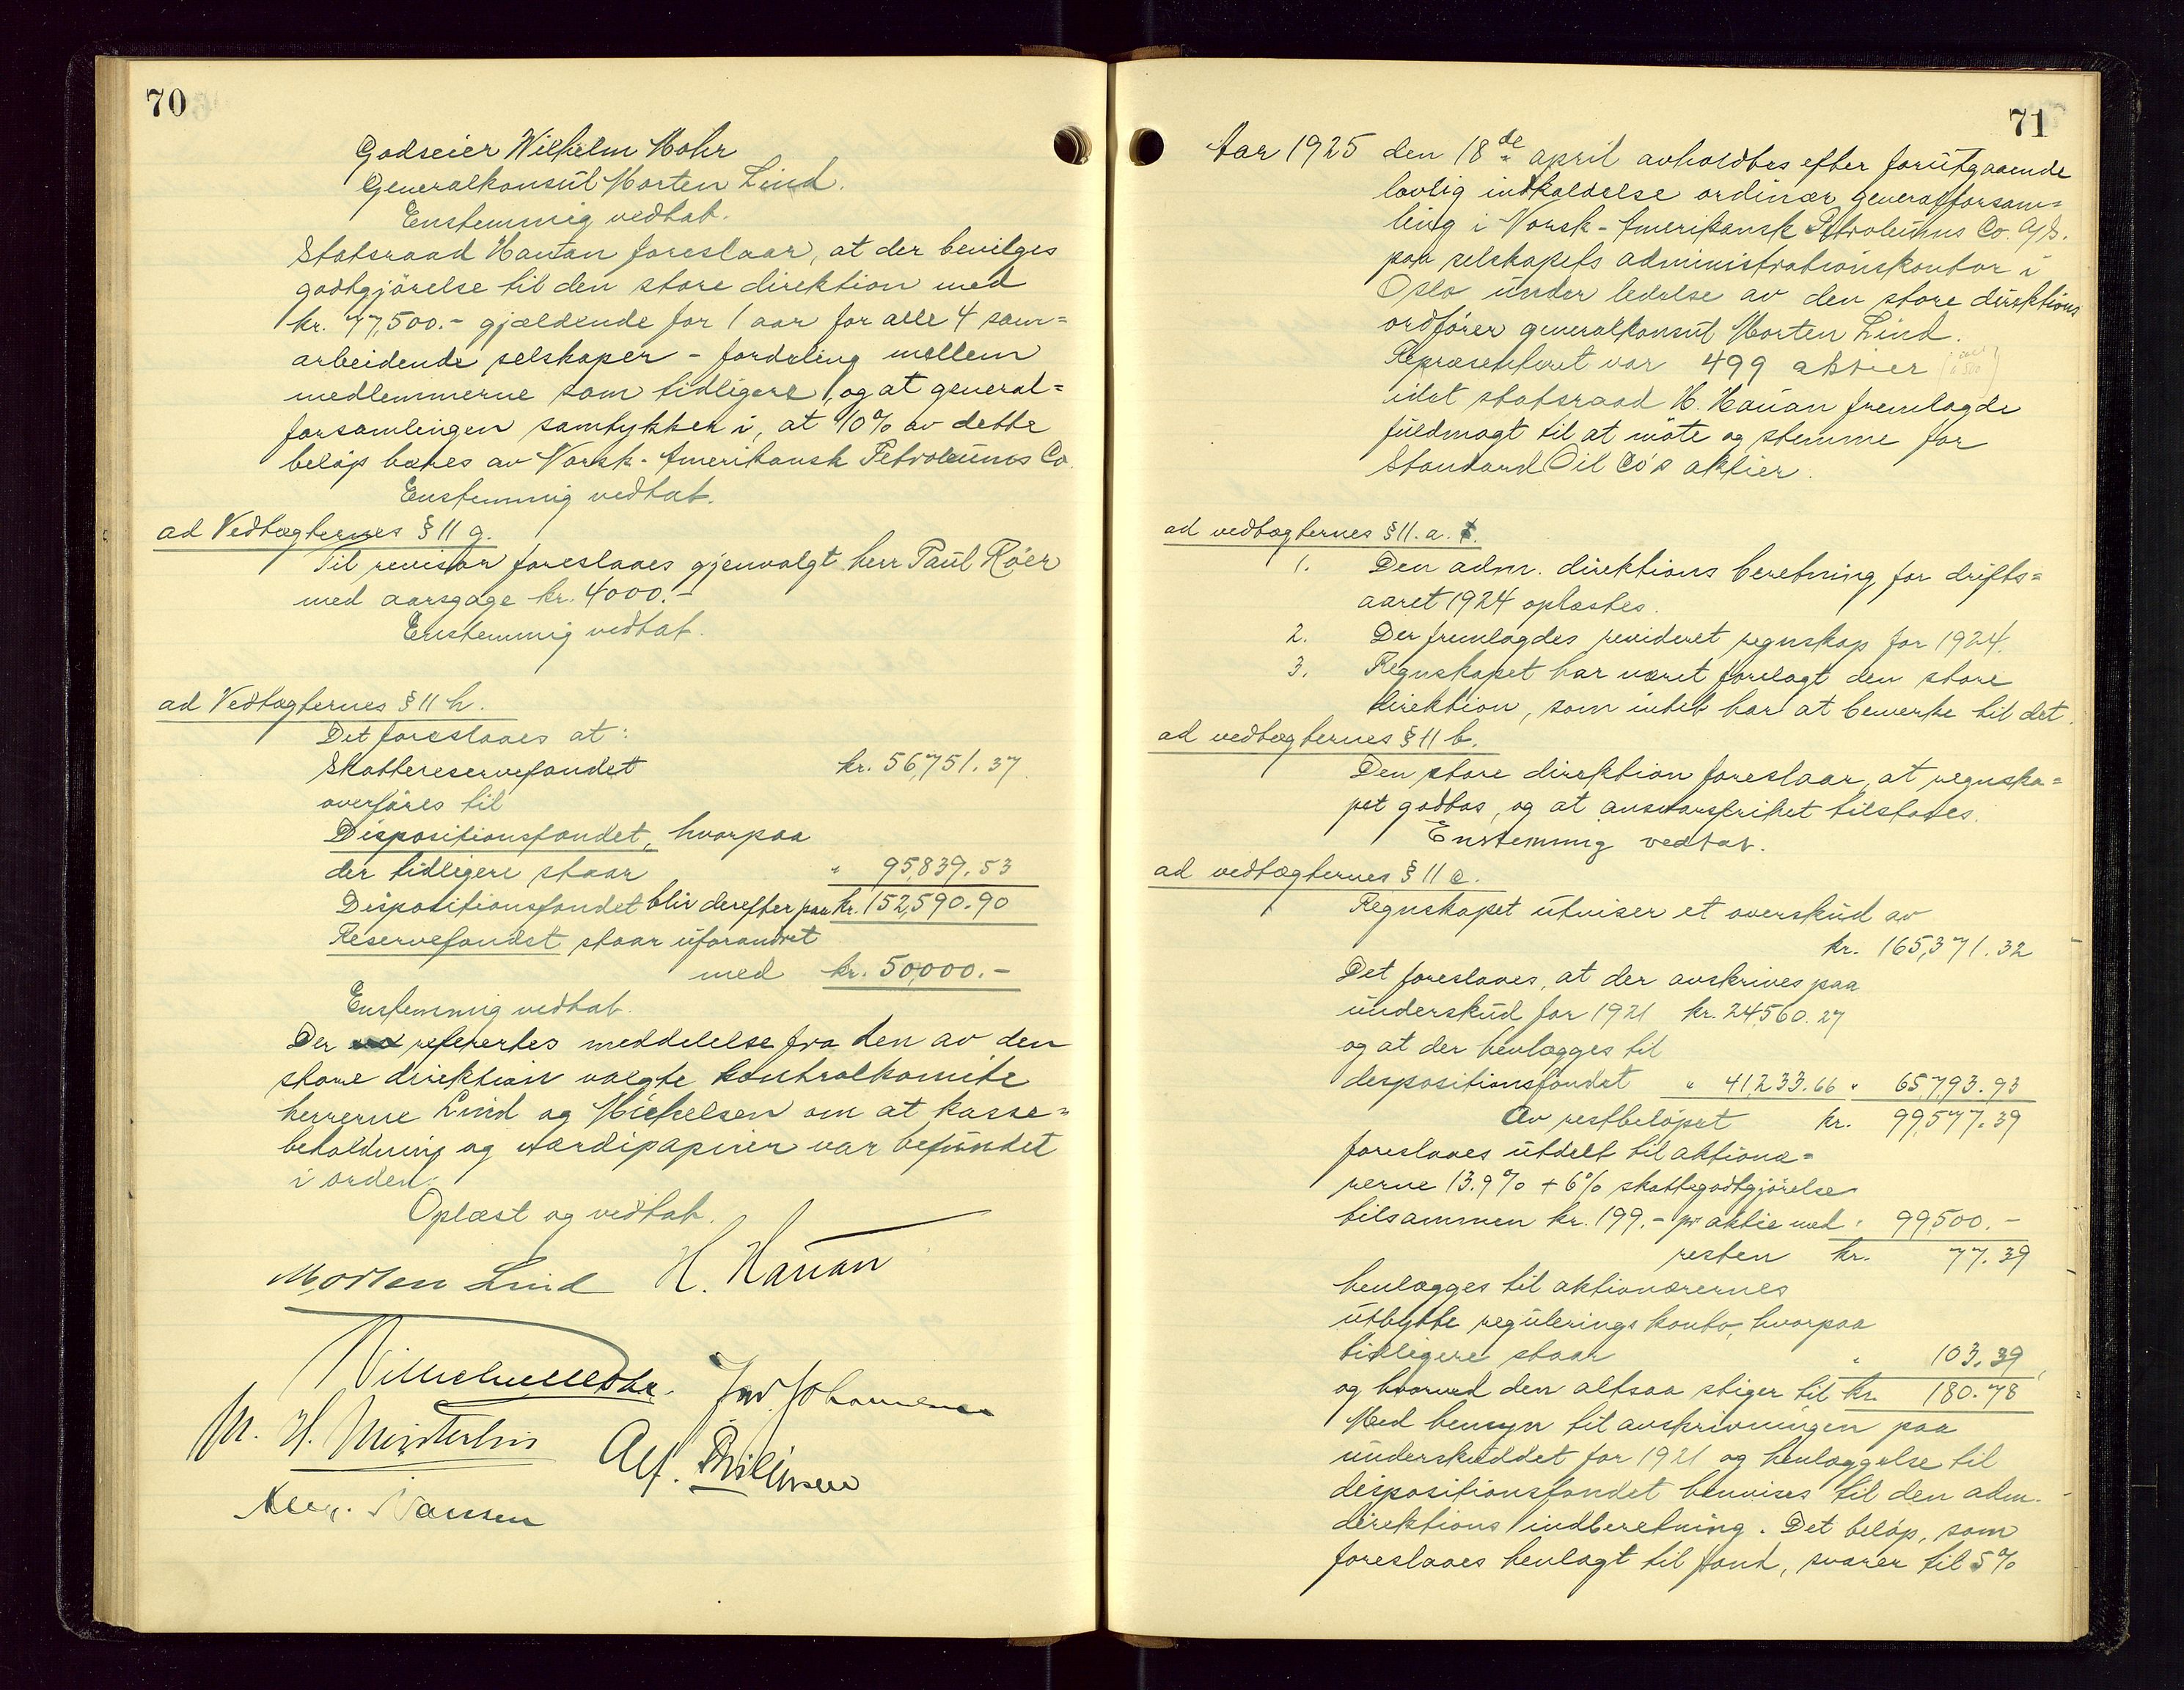 70
Godseier Wilhelm Mohr
Generalkonsul Morten Lind.
Enstemmig vedtat.
Statsraad Hauan foreslaar, at der bevilges
godtgjörelse til den store direktion med
kr. 77,500.- gjældende for 1 aar for alle 4 sam=
arbeidende selskaper - fordeling mellem
medlemmerne som tidligere, og at general=
forsamlingen samtykker i, at 40% av dette
belöp bæres av Norsk-Amerikansk Petroleums Co.
Enstemmig vedtat.
ad Vedtægternes § 11 g.
Til revisor foreslaaes gjenvalgt herr Paul Röer
med aarsgage kr. 4000.-
Enstemmig vedtat.
ad Vedtægternes § 11 h.
Det foreslaaes at:
Skattereservefondet kr. 56,751.37
overföres til
Dispositionsfondet, hvorpaa
der tidligere staar " 95,839.53
Dispositionsfondet blir derefter paa kr. 152,590.90
Reservefondet staar uforandret
med kr. 50,000.-
Enstemmig vedtat.
Der refertes meddelelse fra den av den
store direktion valgte kontrolkomite
herrerne Lind og Michelsen om at kasse=
beholdning og værdipapirer var befundet
i orden.
Oplæst og vedtat.
Morten Lind H. Hauan
Wilhelm Mohr. Joh. Johannesen
M. H.
Alf.
Nansen
71
Aar 1925 den 18de april avholdtes efter forutgaaende
lovlig indkaldelse ordinær generalforsam=
ling i Norsk-Amerikansk Petroleums Co. A/S.
paa selskapets administrationskontor i
Oslo under ledelse av den store direktions
ordförer generalkonsul Morten Lind.
Repræsenteret var 499 aktier
idet statsraad H. Hauan fremlagde
fuldmagt til at möte og stemme for
Standard Oil Co's aktier.
ad vedtægternes § 11. a.
1. Den adm. direktions beretning for drifts=
aaret 1924 oplæstes.
2. Der fremlagdes revideret regnskap for 1924.
3. Regnskapet har været forelagt den store
direktion, som intet har at bemerke til det.
ad vedtægternes § 11 b.
Den store direktion foreslaar, at regnska=
pet godtas, og at ansvarsfrihet tilstaaes.
Enstemmig vedtat.
ad vedtægternes § 11 c.
Regnskapet utviser et overskud av
kr. 165,371.32
Det foreslaaes, at der avskrives paa
underskud for 1921 kr. 24,560.27
og at der henlægges til
dispositionsfondet " 41,233.66 " 65,793.93
Av restbelöpet kr. 99,577.39
foreslaaes utdelt til aktionæ=
rerne 13.9% + 6% skattegodtgjörelse
tilsammen kr. 199.- pr aktie med " 99,500.-
resten kr. 77.39
henlægges til aktionærernes
utbytte regulerings konto, hvorpaa
tidligere staar " 103.39
og hvorved den altsaa stiger til kr. 180.78
Med hensyn til avskrivningen paa
underskuddet for 1921 og henlæggelse til
dispositionsfondet henvises til den adm.
direktions indberetning. Det belöp, som
foreslaaes henlagt til fond, svarer til 5%